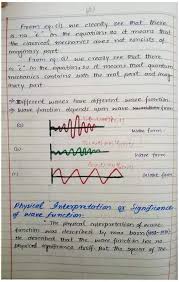 From eq.(i) we clearly see that there
is no "i" in the equation so it means that
the classical mechanics does not consists of
imaginary part.
From eq. (ii) we clearly see that there
is "i" in the equation so it means that quantum
mechanics contains with the real part and imag-
inary part.
Different waves have different wave function.
Wave function depends upon wave
(a)
Wave form
(b)
Wave form
(c)
Wave form
Physical Interpretation or Significance
of wave function:
The physical interpretation of wave
function was described by max born
He described that the wave function has no
physical significance itself but the square of the